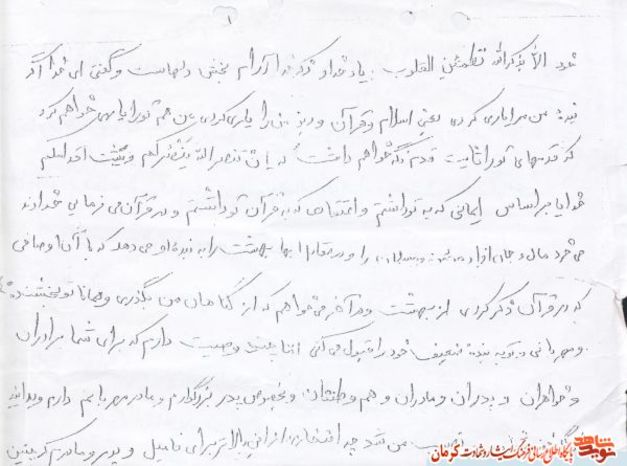 ۱
خود الا بذکرالله تطمئن القلوب . یاد خدا و ذکر خدا آرام بخش دلهاست و گفتی ای خدا اگر
بنده من مرا یاری کردی یعنی اسلام و قرآن و دین من را یاری کردی من هم تو را یاری خواهم کرد
که قدمهای تو را ثابت قدم نگه خواهم داشت که یا ان تنصرالله ینصرکم و یثبت اقدامکم
خدایا بر اساس ایمانی که به تو داشتم و اعتقادی که به قرآن تو داشتم و در قرآن می فرمایی خداوند
می خرد مال و جان افراد را و در مقابل اینها بهشت را به بنده او می دهد که با آن اوصافی
که در قرآن ذکر کردی از بهشت و در آخر می خواهم که از گناهان من بگذری و همانا تو بخشنده
و مهربانی و توبه بنده ضعیف خود را قبول می کنی اما چند وصیت دارم که برای شما برادران
و خواهران و پدران و مادران و هم وطنتان و بخصوص پدر بزرگوارم و مادر مهربانم دارم
من شد چه افتخاری از این بالاتر برای فامیل و پدر و مادرم که چنین
نوید شاهد
پایگاه اطلاع رسانی فرهنگ ایثار و شهادت کرمان